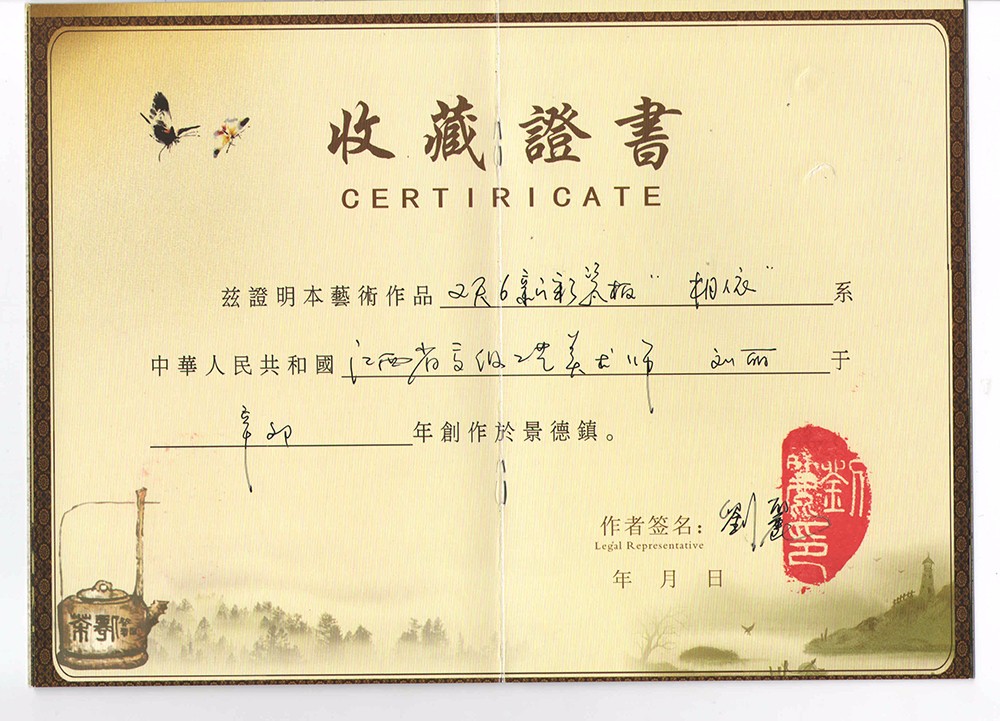 收藏證書
CERTIRICATE
兹證明本藝術作品 2尺6新彩瓷板“相依” 系
中華人民共和國 江西省高级工艺美术师 刘丽 于
辛卯 年創作於景德鎮。
作者签名: 劉麗
Legal Representative
年 月 日
劉麗印